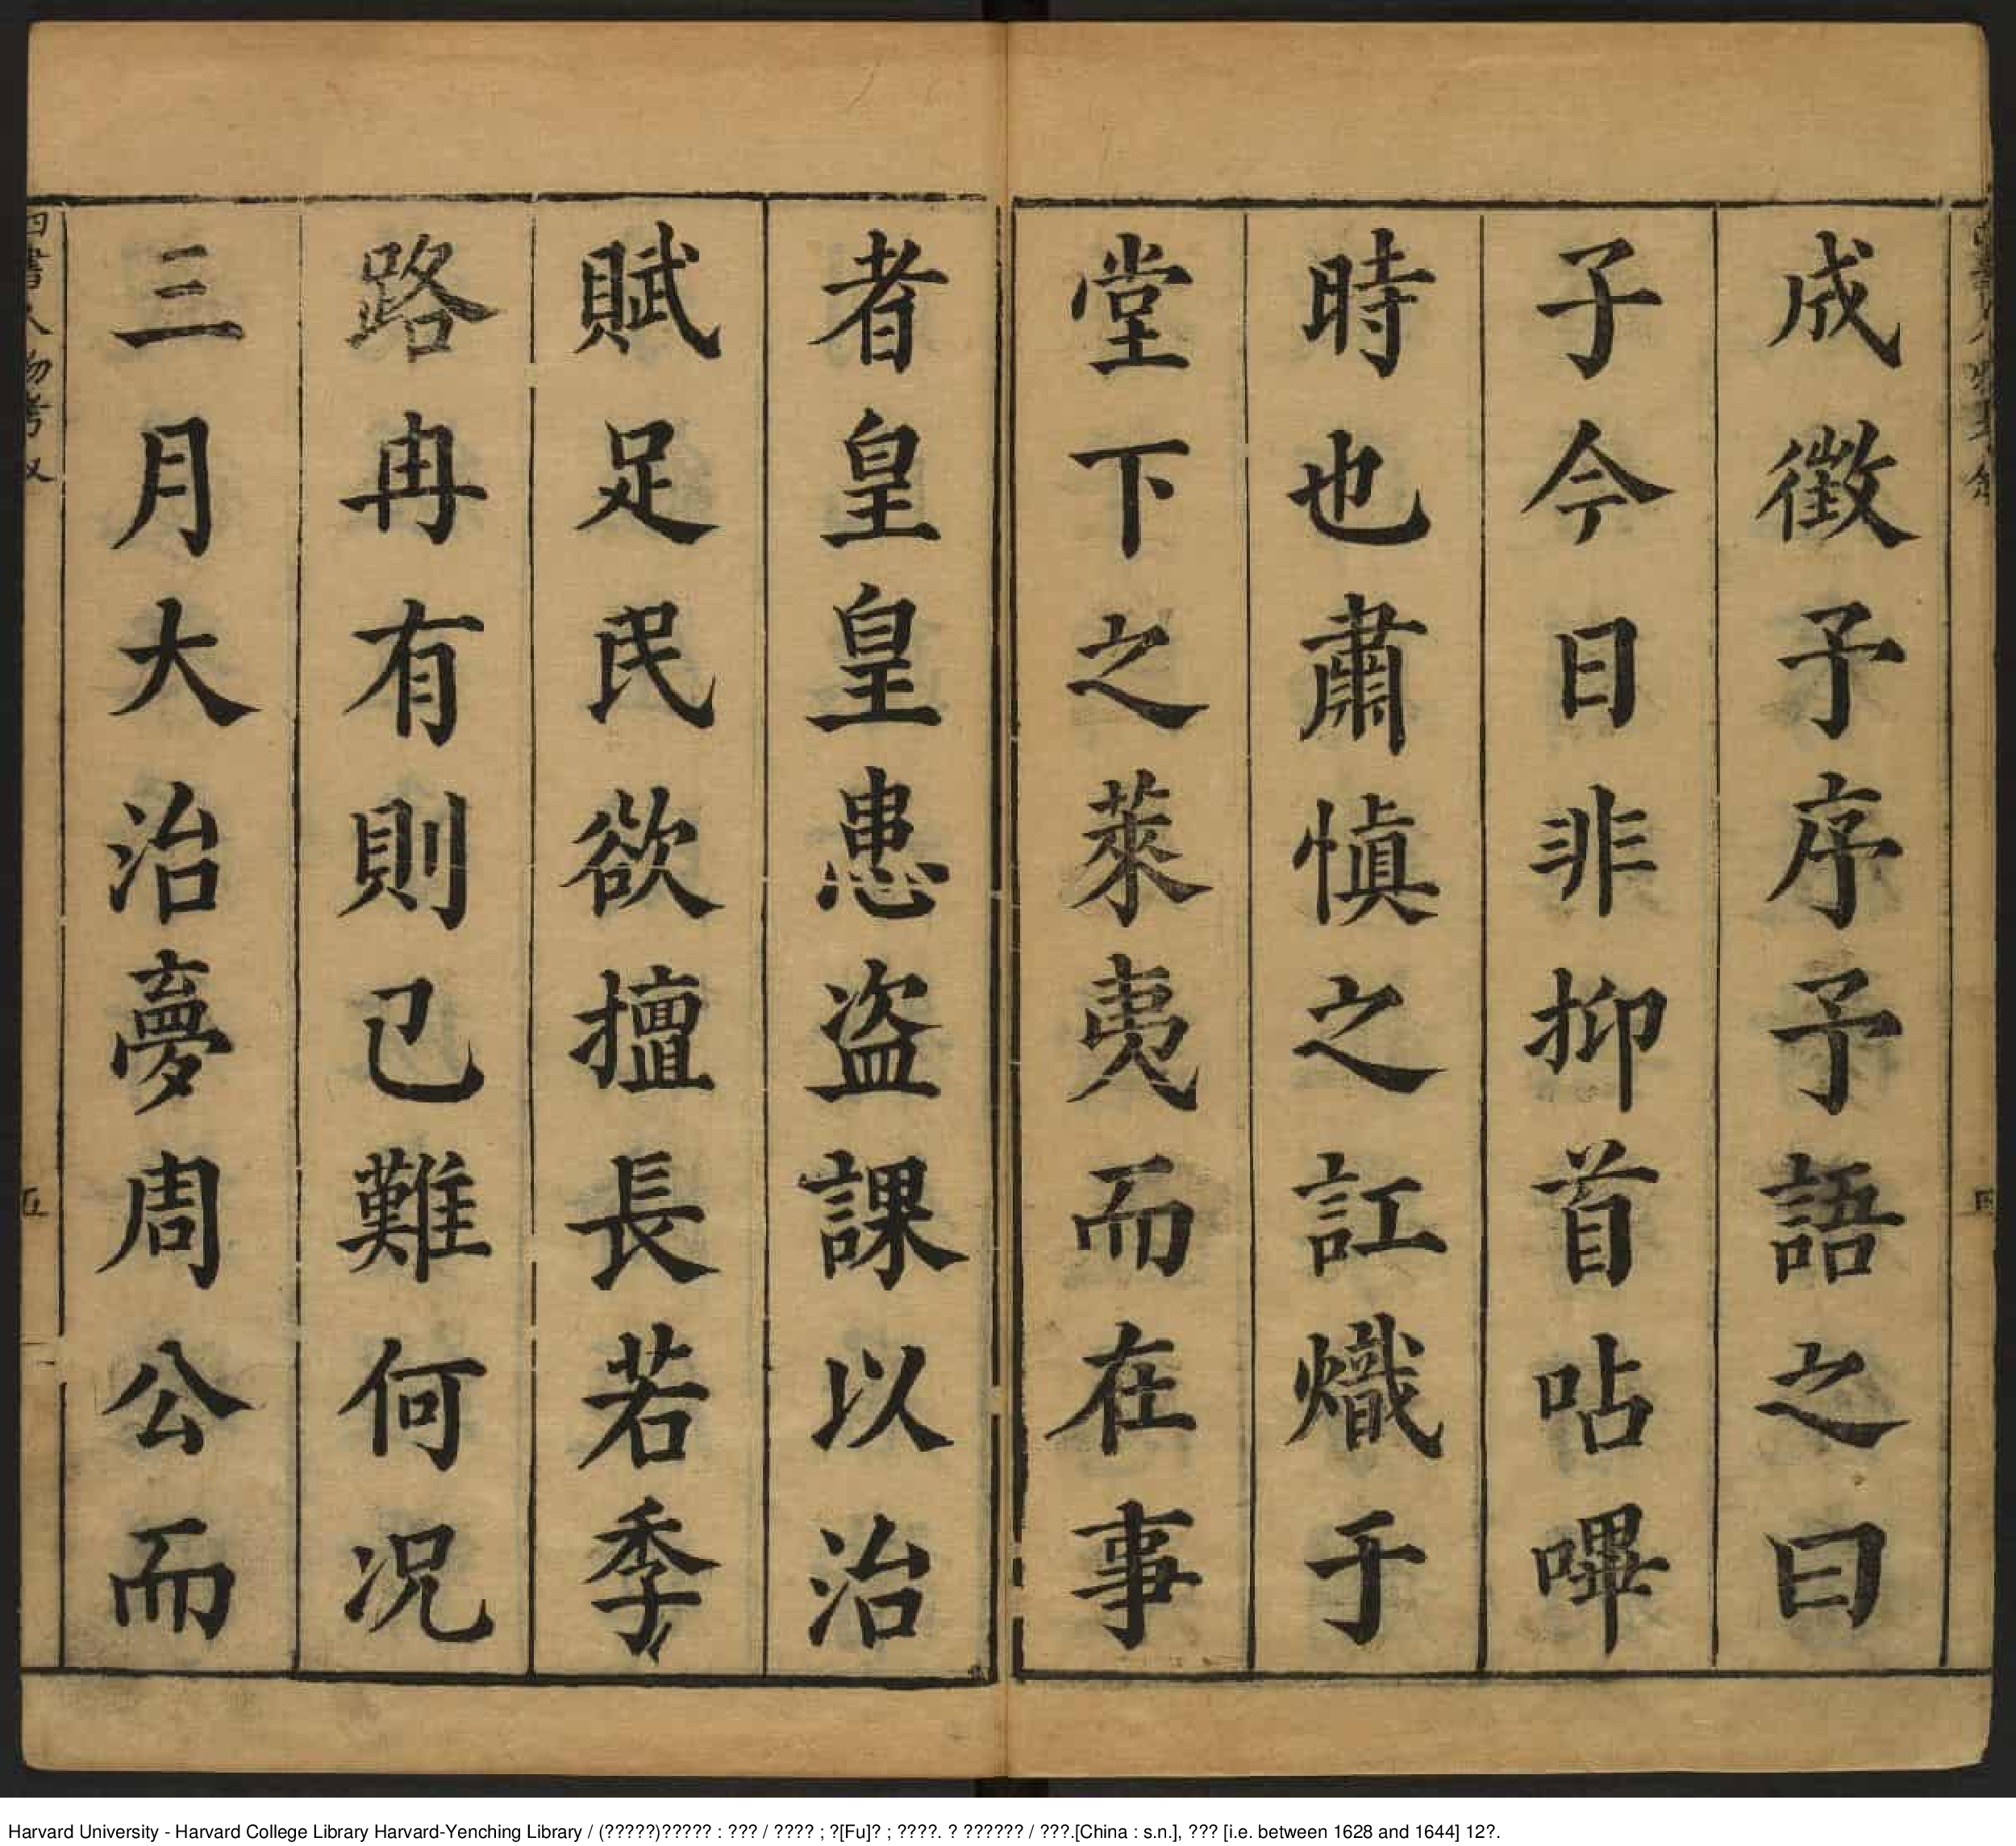 成徵予序予語之曰
子今日非抑首呫嗶
時也肅慎之訌熾于
堂下之萊夷而在事
者皇皇患盜課以治
賦足民欲擅長若季
路冉有則已難何况
三月大治夢周公而
四書人物考叙
五
Harvard University - Harvard College Library Harvard-Yenching Library / (?????)????? : ??? / ???? ; ?[Fu]? ; ????. ? ?????? / ???.[China : s.n.], ??? [i.e. between 1628 and 1644] 12?.